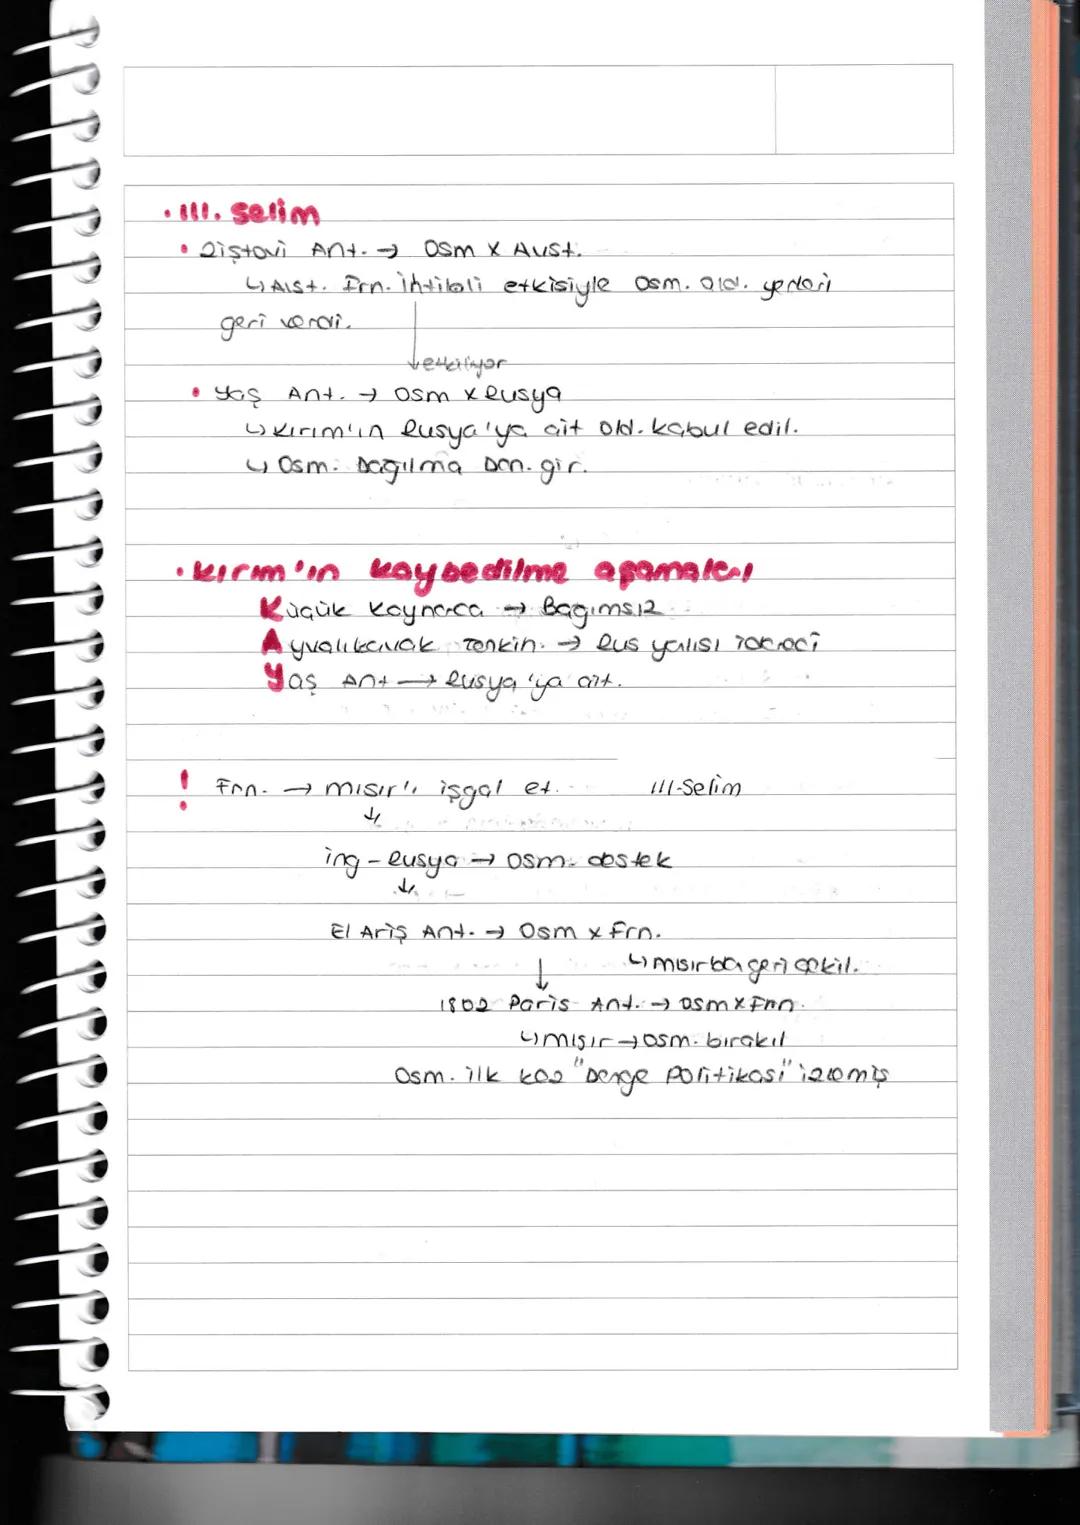 • III. Selim
• Ziştovi Ant. → Osm x Aust.
↳ Aıst. Frn. ihtilali etkisiyle Osm. old. yerleri
geri verdi.
↓ etkiliyor
• Yaş Ant. → Osm x Rusya
↳ Kırım'ın Rusya'ya ait old. kabul edil.
↳ Osm. Dağılma Dön. gir.
• Kırım'ın kaybedilme aşamaları
Küçük Kaynarca → Bağımsız
Aynalıkavak Tenkih. → Rus yanlısı
Yaş Ant → Rusya'ya ait.
! Frn. → mısır'ı işgal et. III-Selim
↓
ing - Rusya → Osm. destek
↓
El Ariş Ant. → Osm x Frn.
↓ ↳ mısırdan geri çekil.
1802 Paris Ant. → Osm x Frn.
↳ mısır → Osm. bırakıl
Osm. ilk kez "Denge Politikası" izlemiş